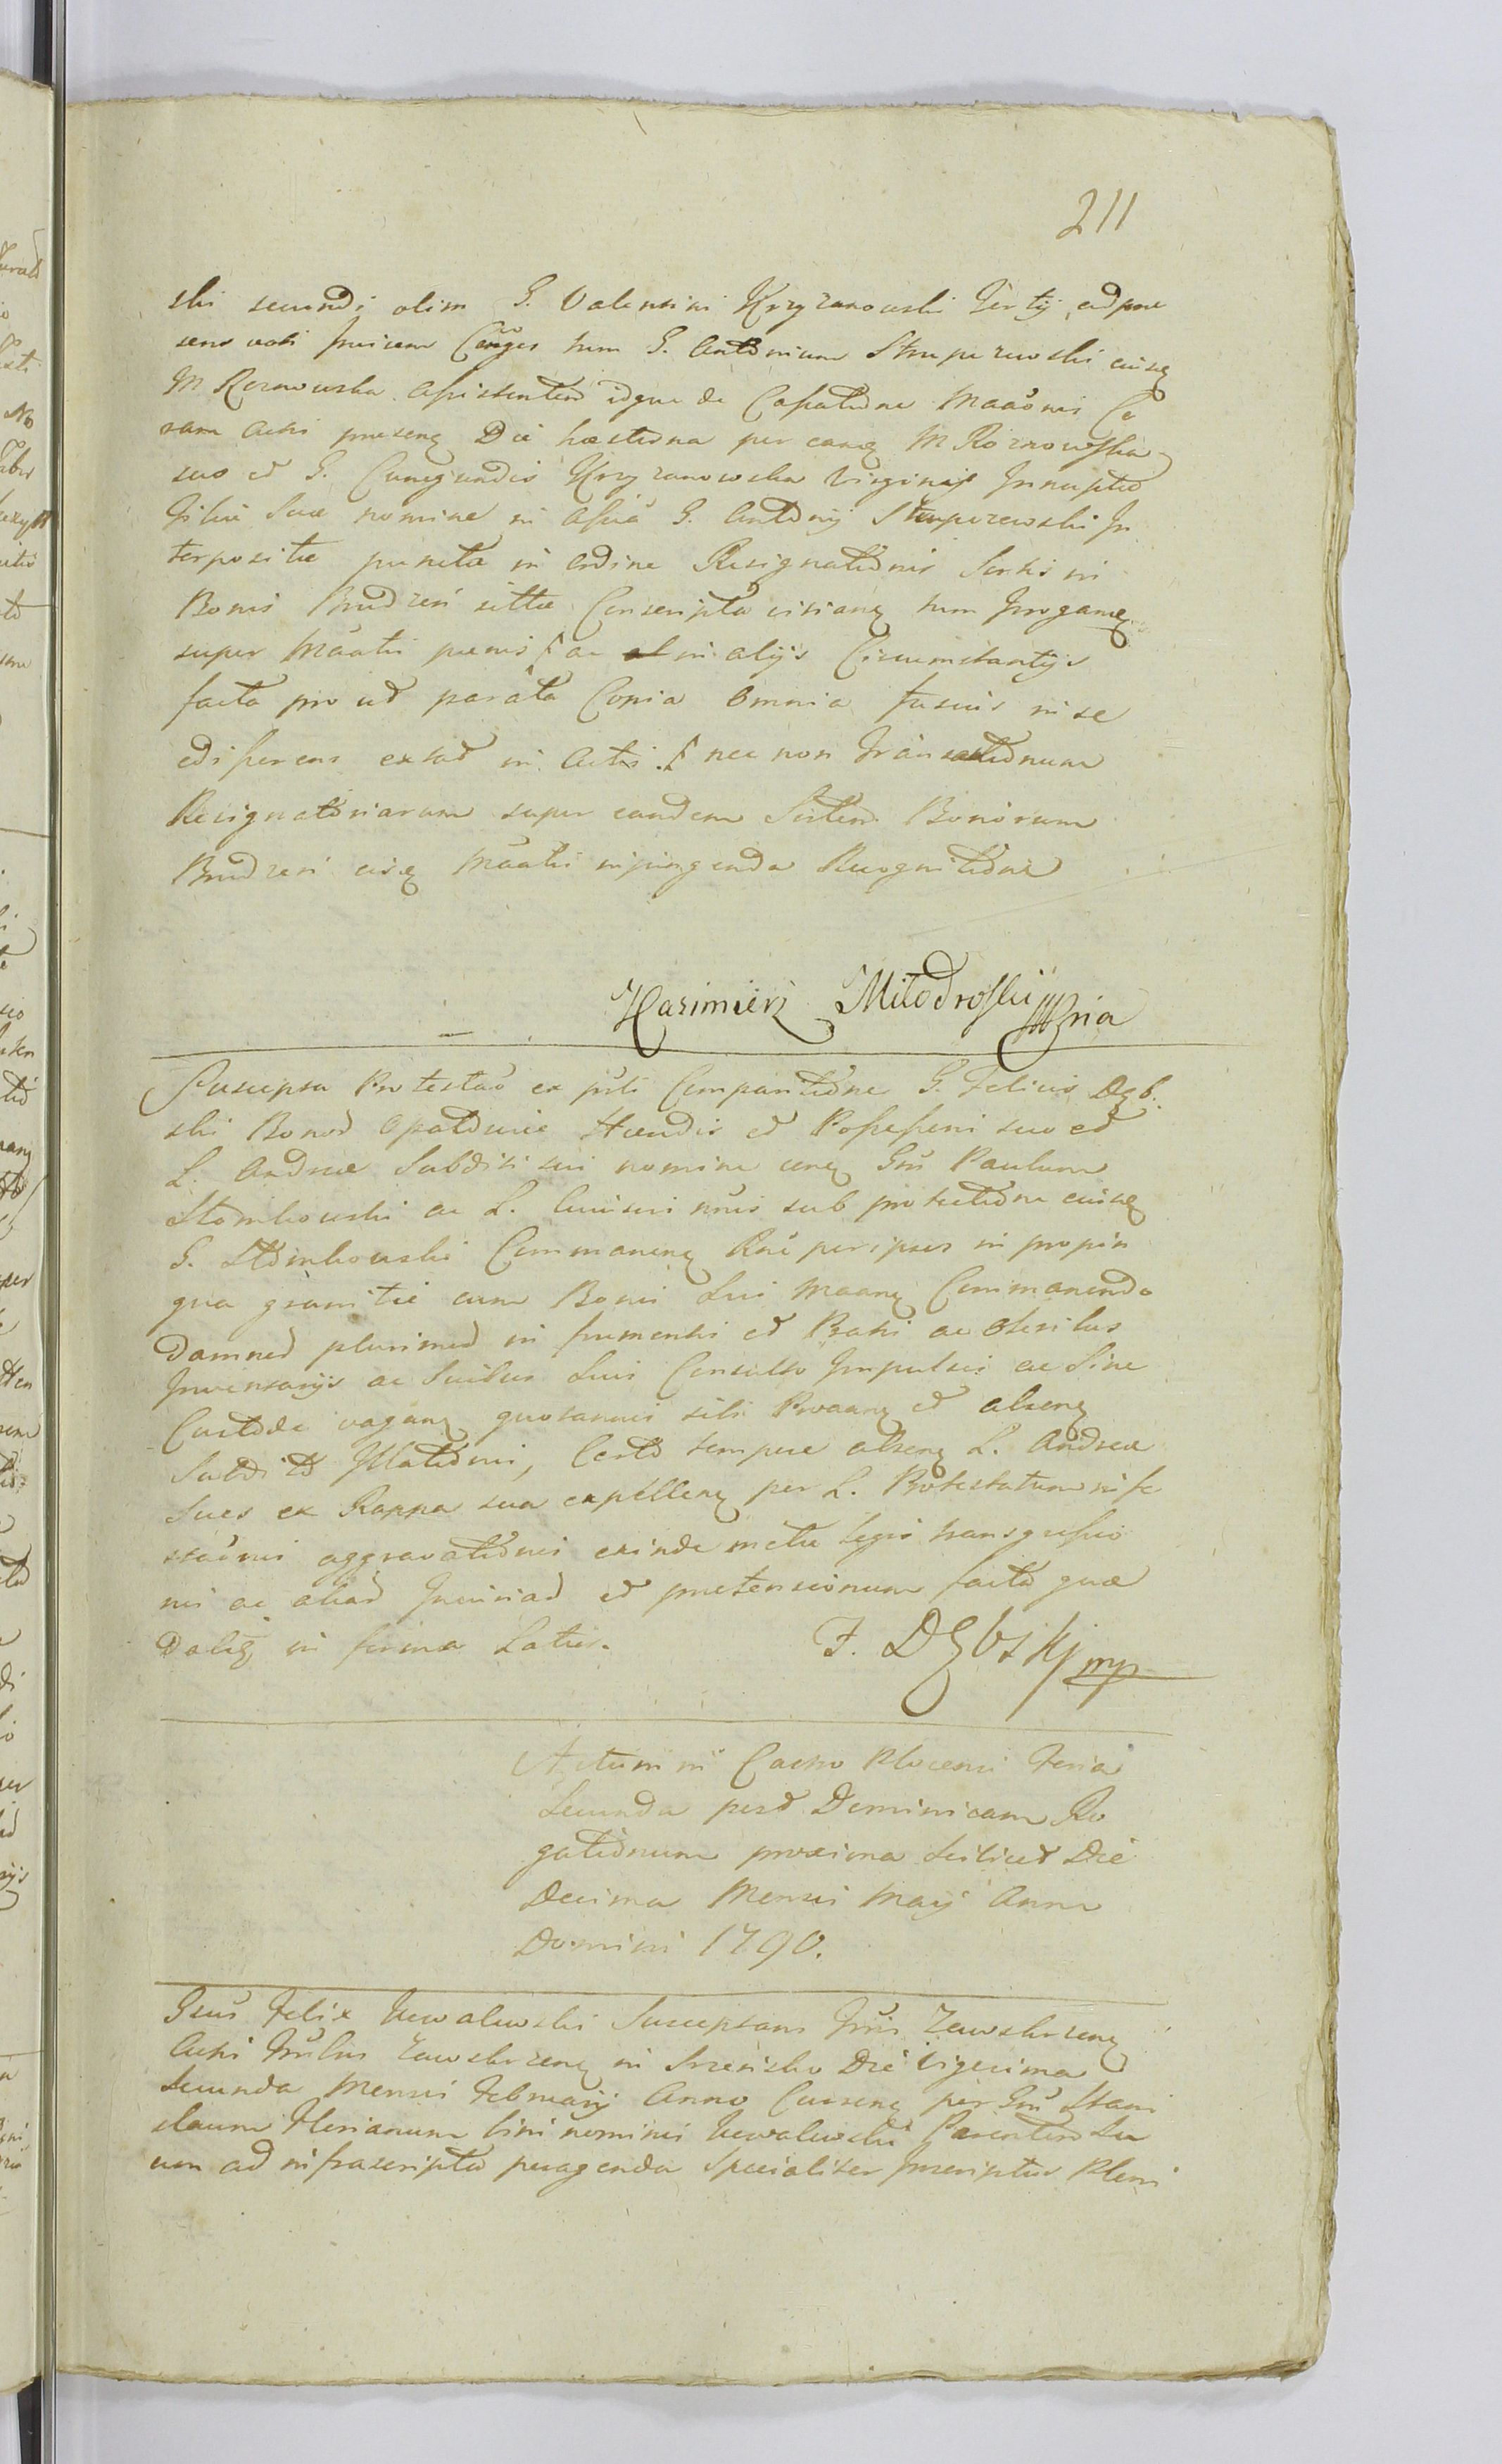 211
ski secundi olim G. Valentini Krzyzanowski Tertij, ad prae
sens vero Conges tum G. Antonium Strupczewski eiusq
M Roznowska Assistentem idque de Cassatione Maaonis Co
ram Actis praesenq Die hesterna per eanq M Roznowska
suo et G. Cunegundis Krzyzanowska Virginis Innupta
Filia Sua nomine in Assia G. Antonij Strupczewski In
terposita puncta in ordine Resignationis Sortis in
Bonis Brudzen sitta Conscripta
super Maatis ac in alijs Circumstantijs
facta pro ut parata Copia omnia fusius in se
edisserens extat in Actis nec non Transactionum
Resignatoriarum super eandem Sortem Bonorum
Brudzen eisq Maatis inpingenda Recognitione
Kazimierz Miłodroski mpria
Suscepta Protestao ex psti Comparitione G. Felicis Dęb
ski Bonor Opatowiec Haendis et Possessoris suo et
L. Andrea Subditi sui nomine conq Gsu Paulum
Slomkowski ac L. sub protectione eiusq
G. Slomkowski Commanenq Rne per ipsos in propin
qua granitie cum Bonis Suis Maanq Commanendo
Damnor plurimor in frumentis et Pratis ac Oleribus
Inventarijs ac Suibus Suis Consulto Impulsis ac Sine
Custode vaganq quotannis sibi Proaanq et absenq
Subdito Illationis, Certo tempore absenq L. Andrea
Sues ex Rappa sua expellenq per L. Protestatum
aggravationis exinde metu legis transgressio
nis ac aliar Iniuriar et praetensionum facta quae
Dabiq in forma Latius.
F. DĘbskj mp
Actum in Castro Plocensi Feria
Secunda post Dominicam Ro
gationum proxima scilicet Die
Decima Mensis Maij Anno
Domini 1790.
Gsus Felix Kowalewski Susceptans Zawskrzenq
Actis Zawskrzenq in Srzensko Die Vigesima
Secunda Mensis Februarij Anno Currenq per Gsu Stani
slaum Florianum bini nominis Kowalewski Parentem Su
um ad infrascripta peragenda Specialiter Inscriptus Pleni